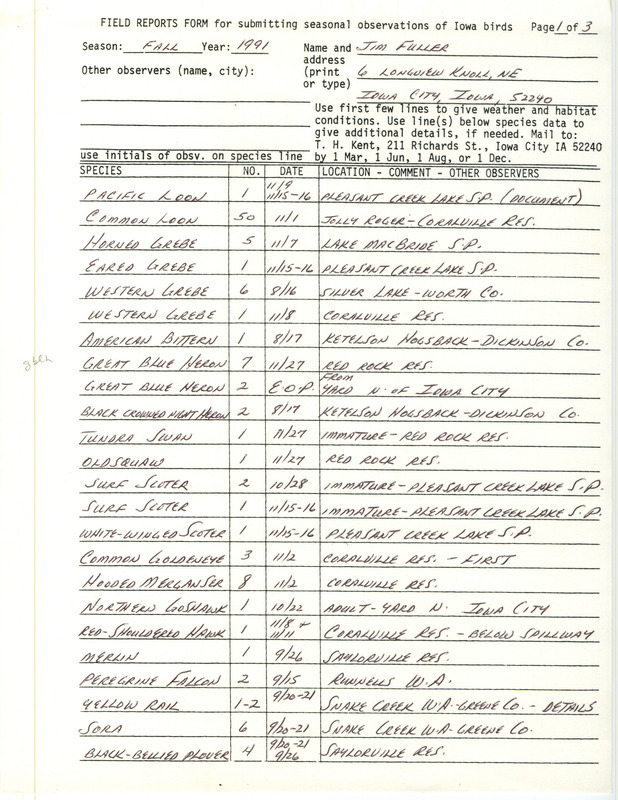 FIELD REPORTS FORM for submitting seasonal observations of Iowa birds Page 1 of 3
Season: FALL Year: 1991 Name and JIM FULLER
address
Other observers (name, city): (print 6 LONGVIEW KNOLL, NE
or type)
IOWA CITY, IOWA, 52240
Use first few lines to give weather and habitat
conditions. Use line(s) below species data to
give additional details, if needed. Mail to:
T. H. Kent, 211 Richards St., Iowa City IA 52240
use initials of obsv. on species line by 1 Mar, 1 Jun, 1 Aug, or 1 Dec.
SPECIES NO. DATE LOCATION - COMMENT - OTHER OBSERVERS
PACIFIC LOON 1 11/9 11/15-16 PLEASANT CREEK LAKE S.P. (DOCUMENT)
COMMON LOON 50 11/1 JOLLY ROGER - CORALVILLE RES.
HORNED GREBE 5 11/7 LAKE MACBRIDE S.P.
EARED GREBE 1 11/15-16 PLEASANT CREEK LAKE S.P.
WESTERN GREBE 6 8/16 SILVER LAKE - WORTH CO.
WESTERN GREBE 1 11/8 CORALVILLE RES.
AMERICAN BITTERN 1 8/17 KETELSON HOGSBACK - DICKINSON CO.
gblh
GREAT BLUE HERON 7 11/27 RED ROCK RES.
GREAT BLUE HERON 2 E.O.P. FROM YARD N. OF IOWA CITY
BLACK CROWNED NIGHT HERON 2 8/17 KETELSON HOGSBACK - DICKINSON CO.
TUNDRA SWAN 1 11/27 IMMATURE - RED ROCK RES.
OLDSQUAW 1 11/27 RED ROCK RES.
SURF SCOTER 2 10/28 IMMATURE - PLEASANT CREEK LAKE S.P.
SURF SCOTER 1 11/15-16 IMMATURE - PLEASANT CREEK LAKE S.P.
WHITE-WINGED SCOTER 1 11/15-16 PLEASANT CREEK LAKE S.P.
COMMON GOLDENEYE 3 11/2 CORALVILLE RES. - FIRST
HOODED MERGANSER 8 11/2 CORALVILLE RES.
NORTHERN GOSHAWK 1 10/22 ADULT - YARD N. IOWA CITY
RED-SHOULDERED HAWK 1 11/8 + 11/11 CORALVILLE RES. - BELOW SPILLWAY
MERLIN 1 9/26 SAYLORVILLE RES.
PEREGRINE FALCON 2 9/15 RUNNELLS W.A.
YELLOW RAIL 1-2 9/20-21 SNAKE CREEK W.A - GREENE CO. - DETAILS
SORA 6 9/20-21 SNAKE CREEK W.A - GREENE CO.
BLACK-BELLIED PLOVER 4 9/20-21 9/26 SAYLORVILLE RES.